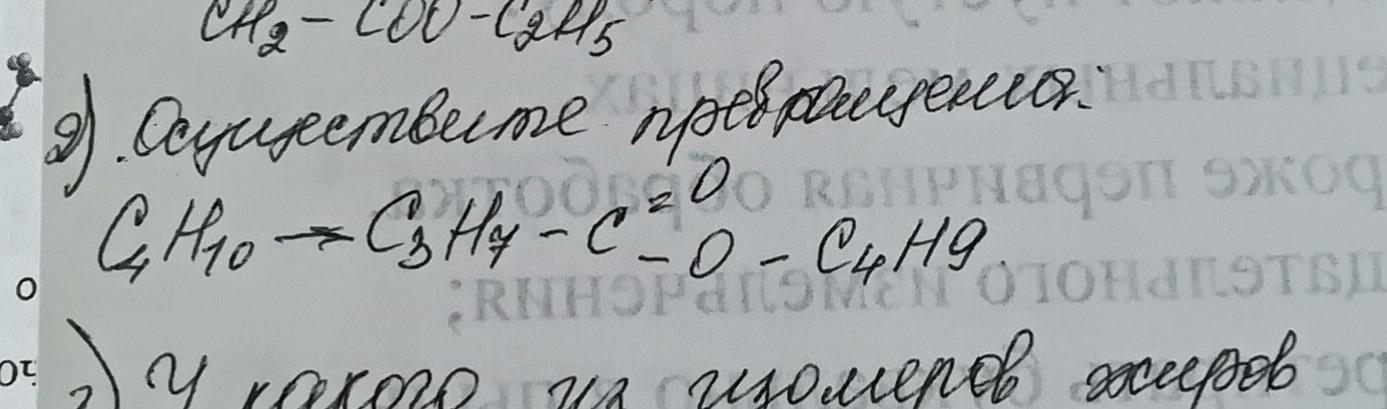 CH2 – COO – C2H5
2) Осуществите превращения:
C4H10 → C3H7 – C =O – O – C4H9.
) У какого из изомеров жиров